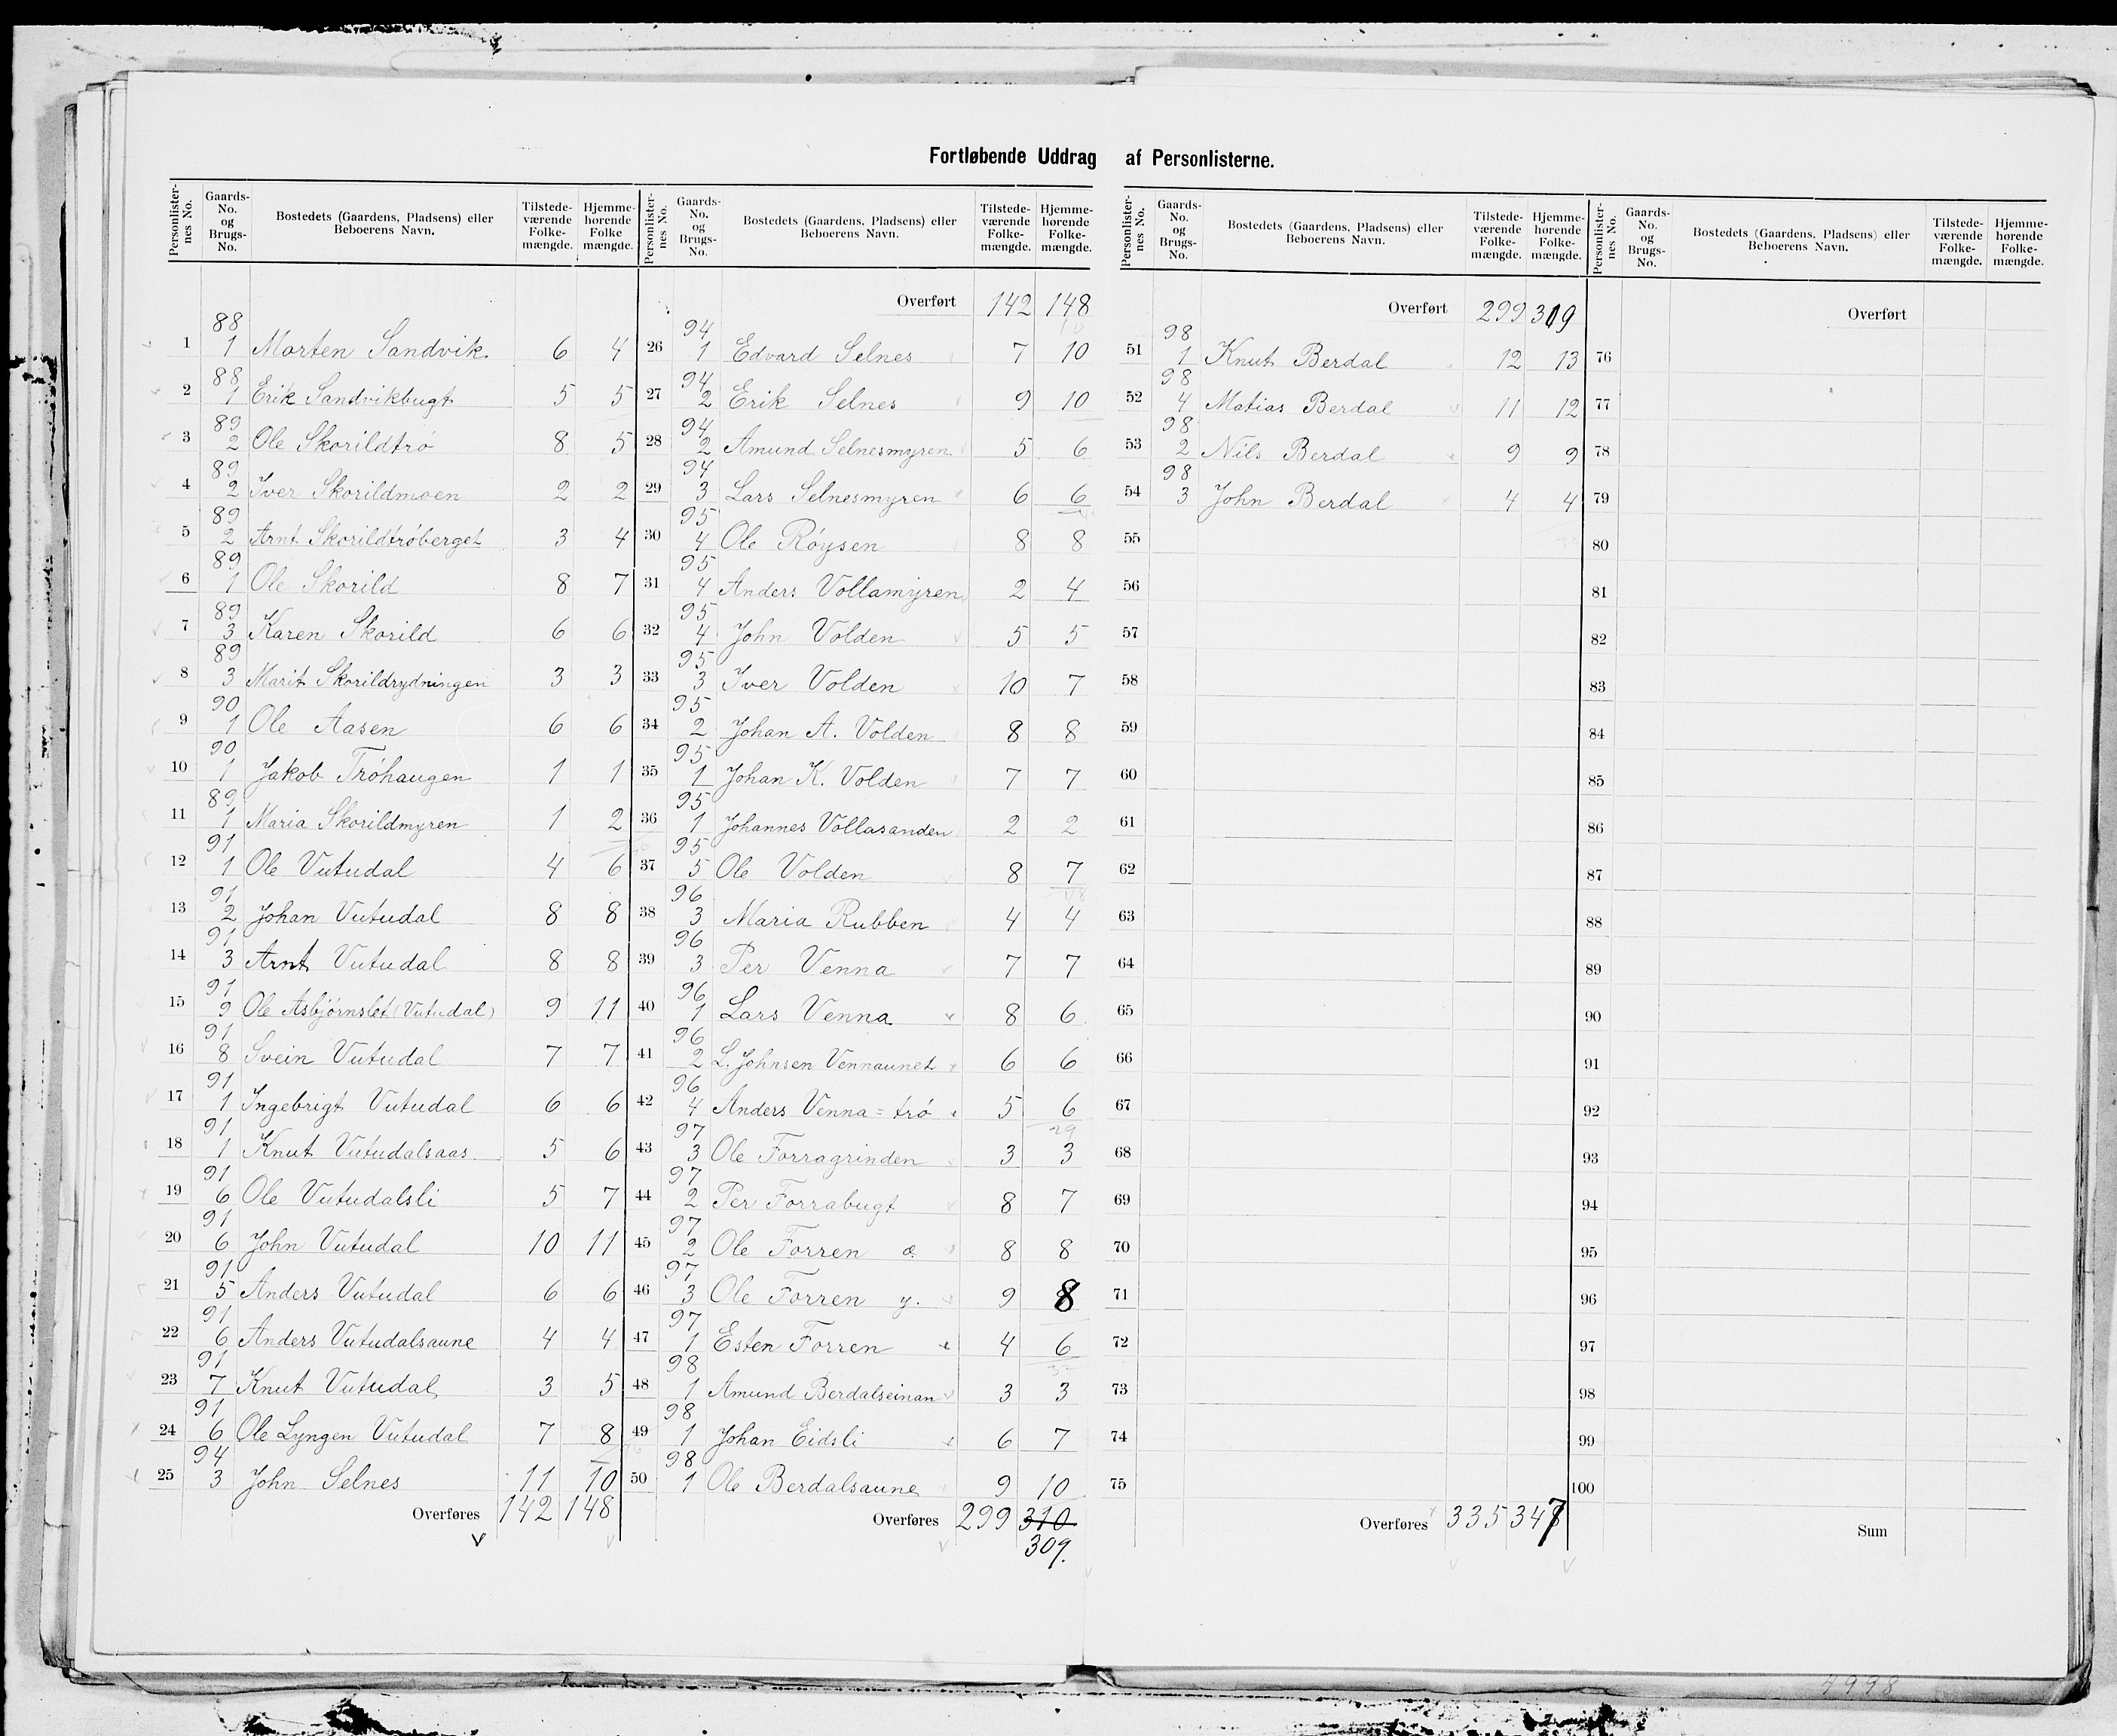 Fortløbende Uddrag af Personlisterne.
Personlisternes No. Gaards-No. og Brugs-No. Bostedets (Gaardens, Pladsens) eller Beboerens Navn. Tilstedeværende Folkemængde. Hjemmehørende Folkemængde.
1 88 1 Morten Sandvik 6 4
2 88 1 Erik Sandvikbugt 5 5
3 89 2 Ole Skorildtrø 8 5
4 89 2 Iver Skorildmoen 2 2
5 89 2 Arnt Skorildtrøberget 3 4
6 89 1 Ole Skorild 8 7
7 89 3 Karen Skorild 6 6
8 89 3 Marit Skorildrydningen 3 3
9 90 1 Ole Aasen 6 6
10 90 1 Jakob Trøhaugen 1 1
11 89 1 Maria Skorildmyren 1 2
12 91 1 Ole Vutudal 4 6
13 91 2 Johan Vutudal 8 8
14 91 3 Arnt Vutudal 8 8
15 91 9 Ole Asbjørnslet (Vutudal) 9 11
16 91 8 Svein Vutudal 7 7
17 91 1 Ingebrigt Vutudal 6 6
18 91 1 Knut Vutudalsaas. 5 6
19 91 6 Ole Vutudalsli 5 7
20 91 6 John Vutudal 10 11
21 91 5 Anders Vutudal 6 6
22 91 6 Anders Vutudalsaune 4 4
23 91 7 Knut Vutudal 3 5
24 91 6 Ole Lyngen Vutudal 7 8
25 94 3 John Selnes 11 10
Overføres 142 148
Personlisternes No. Gaards-No. og Brugs-No. Bostedets (Gaardens, Pladsens) eller Beboerens Navn. Tilstedeværende Folkemængde. Hjemmehørende Folkemængde.
Overført 142 148
26 94 1 Edvard Selnes 7 10
27 94 2 Erik Selnes 9 10
28 94 2 Amund Selnesmyren 5 6
29 94 3 Lars Selnesmyren 6 6
30 95 4 Ole Røysen 8 8
31 95 4 Anders Vollamyren 2 4
32 95 4 John Volden 5 5
33 95 3 Iver Volden 10 7
34 95 2 Johan A. Volden 8 8
35 95 1 Johan K. Volden 7 7
36 95 1 Johannes Vollasanden 2 2
37 95 5 Ole Volden 8 7
38 96 3 Maria Rubben 4 4
39 96 3 Per Venna 7 7
40 96 1 Lars Venna 8 6
41 96 2 L. Johnsen Vennaunet 6 6
42 96 4 Anders Venna=trø 5 6
43 97 3 Ole Forragrinden 3 3
44 97 2 Per Forrabugt 8 7
45 97 2 Ole Forren æ. 8 8
46 97 3 Ole Forren y. 9 8
47 97 1 Esten Forren 4 6
48 98 1 Amund Berdalseinan 3 3
49 98 1 Johan Eidsli 6 7
50 98 1 Ole Berdalsaune 9 10
Overføres 299 310
309.
Personlisternes No. Gaards-No. og Brugs-No. Bostedets (Gaardens, Pladsens) eller Beboerens Navn. Tilstedeværende Folkemængde. Hjemmehørende Folkemængde.
Overført 299 309
51 98 1 Knut Berdal 12 13
52 98 4 Matias Berdal 11 12
53 98 2 Nils Berdal 9 9
54 98 3 John Berdal 4 4
55
56
57
58
59
60
61
62
63
64
65
66
67
68
69
70
71
72
73
74
75
Overføres 335 347
Personlisternes No. Gaards-No. og Brugs-No. Bostedets (Gaardens, Pladsens) eller Beboerens Navn. Tilstedeværende Folkemængde. Hjemmehørende Folkemængde.
Overført
76
77
78
79
80
81
82
83
84
85
86
87
88
89
90
91
92
93
94
95
96
97
98
99
100
Sum
4998